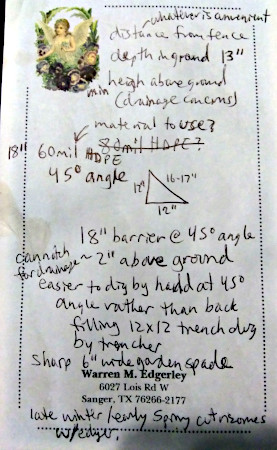 whatever is convenient
distance from fence
depth in ground 13"
min heigh above ground
(drainage concerns)
material to use?
18" 60mil HDPE 80mil HDPE?
45° angle
12" 16-17"
12"
18" barrier @ 45° angle
can notch for drainage ~ 2" above ground
easier to dig by hand at 45°
angle rather than back
filling 12x12 trench dug
by trencher
Sharp 6" wide garden spade
Warren M. Edgerley
6027 Lois Rd W
Sanger, TX 76266-2177
late winter/early Spring cut rizomes
w/edger.